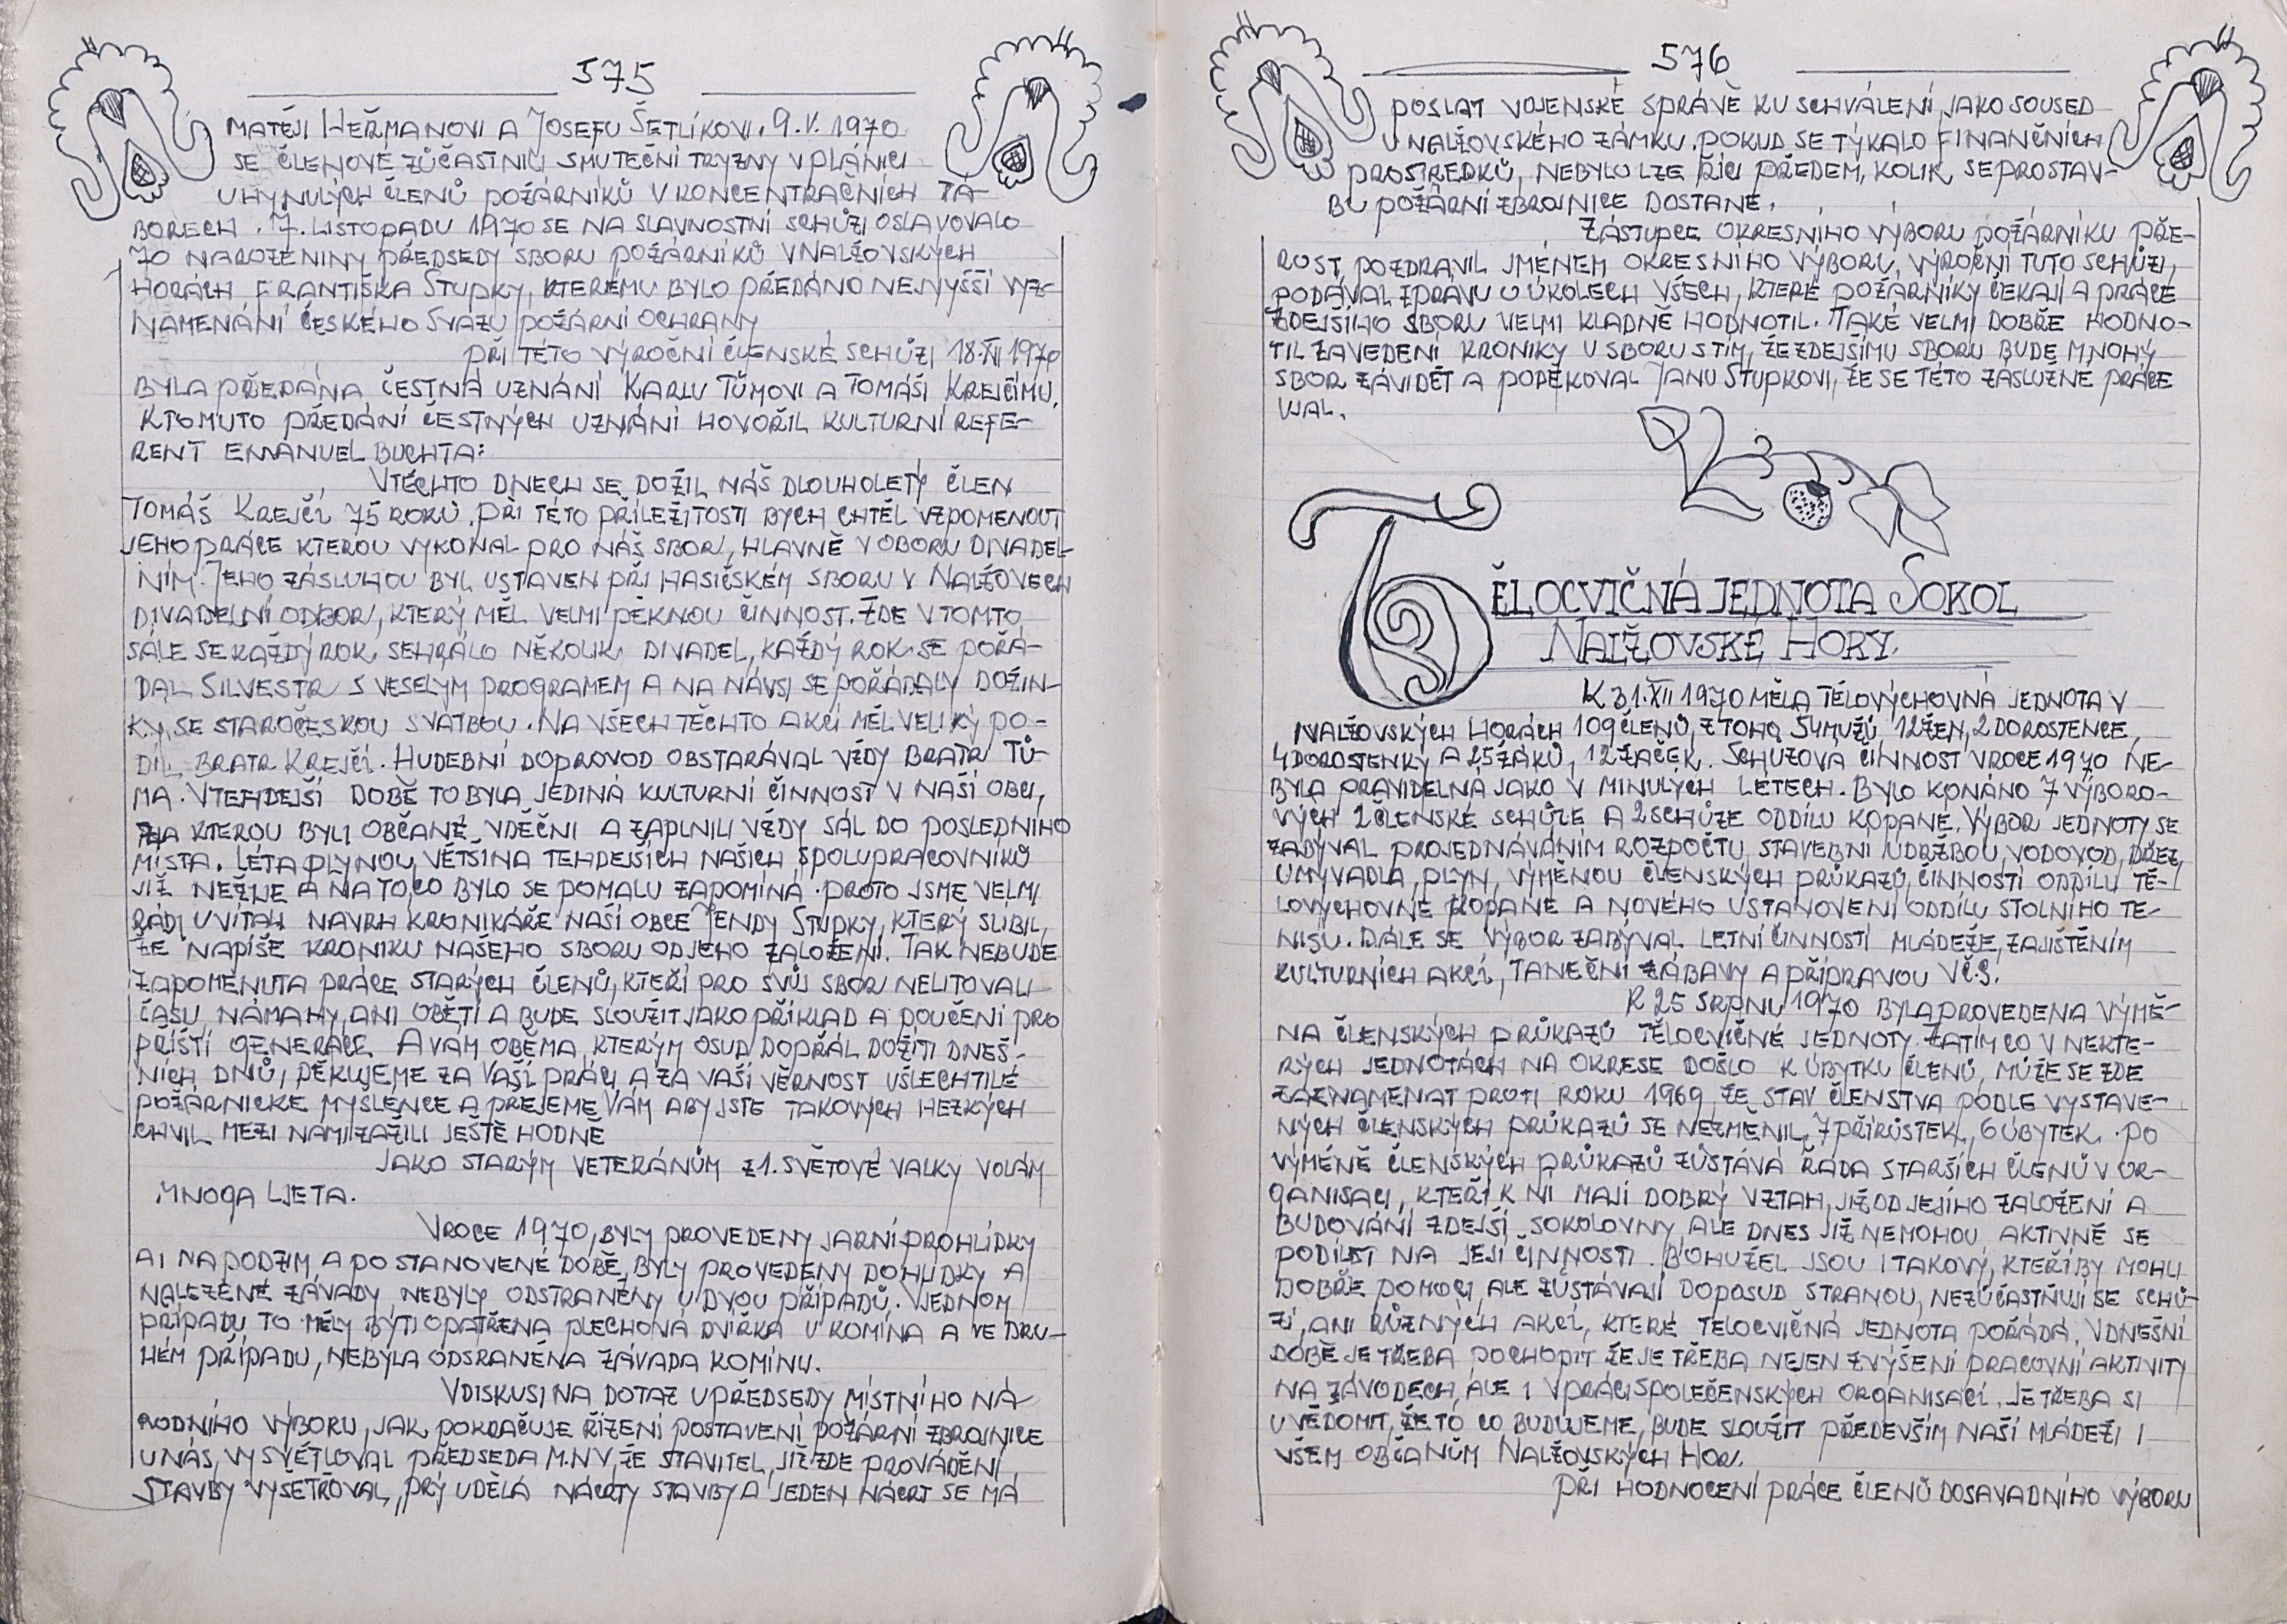 575
MATĚJI HEŘMANOVI A JOSEFU ŠETLÍKOVI. 9. V. 1970
SE ČLENOVÉ ZŮČASTNILI SMUTEČNÍ TRYZNY V PLÁNICI
UHYNULÝCH ČLENŮ POŽÁRNÍKŮ V KONCENTRAČNÍCH TÁ-
BORECH. 7. LISTOPADU 1970 SE NA SLAVNOSTNÍ SCHŮZI OSLAVOVALO
70 NAROZENINY PŘEDSEDY SBORU POŽÁRNÍKŮ V NALŽOVSKÝCH
HORÁCH FRANTIŠKA STUPKY, KTERÉMU BYLO PŘEDÁNO NEJVYŠŠÍ VYZ-
NAMENÁNÍ ČESKÉHO SVAZU POŽÁRNÍ OCHRANY
PŘI TÉTO VÝROČNÍ ČLENSKÉ SCHŮZI 18. XII 1970
BYLA PŘEDÁNA ČESTNÁ UZNÁNÍ KARLU TŮMOVI A TOMÁŠI KREJČÍMU.
K TOMUTO PŘEDÁNÍ ČESTNÝCH UZNÁNÍ HOVOŘIL KULTURNÍ REFE-
RENT EMANUEL BUCHTA:
V TĚCHTO DNECH SE DOŽIL NÁŠ DLOUHOLETÝ ČLEN
TOMÁŠ KREJČÍ 75 ROKŮ. PŘI TÉTO PŘÍLEŽITOSTI BYCH CHTĚL VZPOMENOUT
JEHO PRÁCE KTEROU VYKONAL PRO NÁŠ SBOR, HLAVNĚ V OBORU DIVADEL-
NÍM. JEHO ZÁSLUHOU BYL USTAVEN PŘI HASIČSKÉM SBORU V NALŽOVECH
DIVADELNÍ ODBOR, KTERÝ MĚL VELMI PĚKNOU ČINNOST. ZDE V TOMTO
SÁLE SE KAŽDÝ ROK SEHRÁLO NĚKOLIK DIVADEL, KAŽDÝ ROK SE POŘÁ-
DAL SILVESTR S VESELÝM PROGRAMEM A NA NÁVSI SE POŘÁDALY DOŽIN-
KY SE STAROČESKOU SVATBOU. NA VŠECH TĚCHTO AKCÍ MĚL VELIKÝ PO-
DÍL BRATR KREJČÍ. HUDEBNÍ DOPROVOD OBSTARÁVAL VŽDY BRATR TŮ-
MA. V TEHDEJŠÍ DOBĚ TO BYLA JEDINÁ KULTURNÍ ČINNOST V NAŠÍ OBCI,
ZA KTEROU BYLI OBČANÉ VDĚČNI A ZAPLNILI VŽDY SÁL DO POSLEDNÍHO
MÍSTA. LÉTA PLYNOU, VĚTŠINA TEHDEJŠÍCH NAŠICH SPOLUPRACOVNÍKŮ
JIŽ NEŽIJE A NA TO, CO BYLO SE POMALU ZAPOMÍNÁ. PROTO JSME VELMI
RÁDI UVÍTALI NÁVRH KRONIKÁŘE NAŠÍ OBCE JENDY STUPKY, KTERÝ SLÍBIL,
ŽE NAPÍŠE KRONIKU NAŠEHO SBORU OD JEHO ZALOŽENÍ. TAK NEBUDE
ZAPOMENUTA PRÁCE STARÝCH ČLENŮ, KTEŘÍ PRO SVŮJ SBOR NELITOVALI
ČASU, NÁMAHY, ANI OBĚTÍ A BUDE SLOUŽIT JAKO PŘÍKLAD A POUČENÍ PRO
PŘÍŠTÍ GENERACE. A VÁM OBĚMA, KTERÝM OSUD DOPŘÁL DOŽÍTI DNEŠ-
NÍCH DNŮ, DĚKUJEME ZA VAŠÍ PRÁCI A ZA VAŠÍ VĚRNOST UŠLECHTILÉ
POŽÁRNICKÉ MYŠLENCE A PŘEJEME VÁM ABY JSTE TAKOVÝCH HEZKÝCH
CHVIL MEZI NÁMI ZAŽILI JEŠTĚ HODNĚ
JAKO STARÝM VETERÁNŮM Z 1. SVĚTOVÉ VÁLKY VOLÁM
MNOGA LJETA.
V ROCE 1970, BYLY PROVEDENY JARNÍ PROHLÍDKY
A I NA PODZIM A PO STANOVENÉ DOBĚ, BYLY PROVEDENY DOHLÍDKY A
NALEZENÉ ZÁVADY NEBYLY ODSTRANĚNY U DVOU PŘÍPADŮ. V JEDNOM
PŘÍPADU TO MĚLY BÝTI OPATŘENA PLECHOVÁ DVÍŘKA U KOMÍNA A VE DRU-
HÉM PŘÍPADU, NEBYLA ODSRANĚNA ZÁVADA KOMÍNU.
V DISKUSI NA DOTAZ U PŘEDSEDY MÍSTNÍHO NÁ-
RODNÍHO VÝBORU, JAK POKRAČUJE ŘÍZENÍ POSTAVENÍ POŽÁRNÍ ZBROJNICE
U NÁS, VYSVĚTLOVAL PŘEDSEDA M.N V, ŽE STAVITEL, JIŽ ZDE PROVÁDĚNÍ
STAVBY VYŠETŘOVAL, PRÝ UDĚLÁ NÁCRTY STAVBY A JEDEN NÁCRT SE MÁ
576
POSLAT VOJENSKÉ SPRÁVĚ KU SCHVÁLENÍ JAKO SOUSED
U NALŽOVSKÉHO ZÁMKU. POKUD SE TÝKALO FINANČNÍCH
PROSTŘEDKŮ, NEBYLO LZE ŘÍCI PŘEDEM, KOLIK SE PROSTAV-
BU POŽÁRNÍ ZBROJNICE DOSTANE.
ZÁSTUPCE OKRESNÍHO VÝBORU POŽÁRNÍKU PŘE-
ROST, POZDRAVIL JMÉNEM OKRESNÍHO VÝBORU, VÝROČNÍ TUTO SCHŮZI,
PODÁVAL ZPRÁVU O ÚKOLECH VŠECH, KTERÉ POŽÁRNÍKY ČEKAJÍ A PRÁCE
ZDEJŠÍHO SBORU VELMI KLADNĚ HODNOTIL. TAKÉ VELMI DOBŘE HODNO-
TIL ZAVEDENÍ KRONIKY U SBORU S TÍM, ŽE ZDEJŠÍMU SBORU BUDE MNOHÝ
SBOR ZÁVIDĚT A PODĚKOVAL JANU STUPKOVI, ŽE SE TÉTO ZÁSLUŽNÉ PRÁCE
UJAL.
TĚLOCVIČNÁ JEDNOTA SOKOL
NALŽOVSKÉ HORY.
K 31. XII 1970 MĚLA TĚLOVÝCHOVNÁ JEDNOTA V
NALŽOVSKÝCH HORÁCH 109 ČLENŮ, Z TOHO 54 MUŽŮ, 12 ŽEN, 2 DOROSTENCE,
4 DOROSTENKY A 25 ŽÁKŮ, 12 ŽAČEK. SCHŮZOVÁ ČINNOST V ROCE 1970 NE-
BYLA PRAVIDELNÁ JAKO V MINULÝCH LÉTECH. BYLO KONÁNO 7 VÝBORO-
VÝCH 2 ČLENSKÉ SCHŮZE A 2 SCHŮZE ODDÍLU KOPANÉ. VÝBOR JEDNOTY SE
ZABÝVAL PROJEDNÁVÁNÍM ROZPOČTU, STAVEBNÍ ÚDRŽBOU, VODOVOD, DŘEZ,
UMYVADLA, PLYN, VÝMĚNOU ČLENSKÝCH PRŮKAZŮ, ČINNOSTÍ ODDÍLU TĚ-
LOVÝCHOVNÉ KOPANÉ A NOVÉHO USTANOVENÍ ODDÍLU STOLNÍHO TE-
NISU. DÁLE SE VÝBOR ZABÝVAL LETNÍ ČINNOSTÍ MLÁDEŽE, ZAJIŠTĚNÍM
KULTURNÍCH AKCÍ, TANEČNÍ ZÁBAVY A PŘÍPRAVOU VČS.
K 25 SRPNU 1970 BYLA PROVEDENA VÝMĚ-
NA ČLENSKÝCH PRŮKAZŮ TĚLOCVIČNÉ JEDNOTY. ZATÍM CO V NĚKTE-
RÝCH JEDNOTÁCH NA OKRESE DOŠLO K ÚBYTKU ČLENŮ, MŮŽE SE ZDE
ZAZNAMENAT PROTI ROKU 1969, ŽE STAV ČLENSTVA PODLE VYSTAVE-
NÝCH ČLENSKÝCH PRŮKAZŮ SE NEZMĚNIL, 7 PŘÍRŮSTEK, 6 ÚBYTEK. PO
VÝMĚNĚ ČLENSKÝCH PRŮKAZŮ ZŮSTÁVÁ ŘADA STARŠÍCH ČLENŮ V OR-
GANISACI, KTEŘÍ K NÍ MAJÍ DOBRÝ VZTAH, JIŽ OD JEJÍHO ZALOŽENÍ A
BUDOVÁNÍ ZDEJŠÍ SOKOLOVNY, ALE DNES JIŽ NEMOHOU AKTIVNĚ SE
PODÍLET NA JEJÍ ČINNOSTI. BOHUŽEL JSOU I TAKOVÝ, KTEŘÍ BY MOHLI
DOBŘE POMOCI, ALE ZŮSTÁVAJÍ DOPOSUD STRANOU, NEZÚČASTŇUJÍ SE SCHŮ-
ZÍ, ANI RŮZNÝCH AKCÍ, KTERÉ TĚLOCVIČNÁ JEDNOTA POŘÁDÁ. V DNEŠNÍ
DOBĚ JE TŘEBA POCHOPIT ŽE JE TŘEBA NEJEN ZVÝŠENÍ PRACOVNÍ AKTIVITY
NA ZÁVODECH, ALE I V PRÁCI SPOLEČENSKÝCH ORGANISACÍ. JE TŘEBA SI
UVĚDOMIT, ŽE TO CO BUDUJEME, BUDE SLOUŽIT PŘEDEVŠÍM NAŠÍ MLÁDEŽI I
VŠEM OBČANŮM NALŽOVSKÝCH HOR.
PŘI HODNOCENÍ PRÁCE ČLENŮ DOSAVADNÍHO VÝBORU